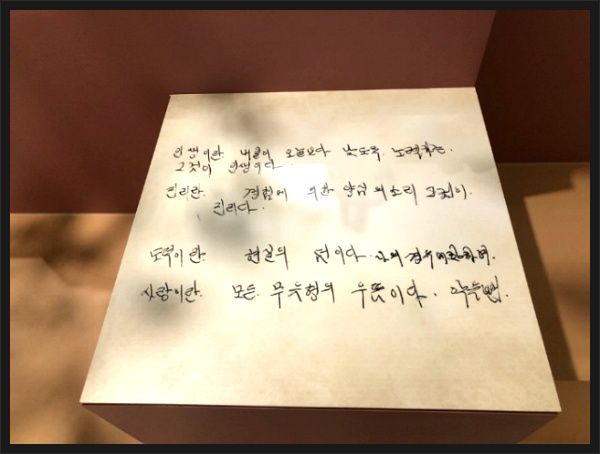 인생이란 내일이 오늘보다 낫도록 노력하는.
그것이 인생이다.
진리란. 경험에 의한 양심의 소리 그것이.
진리다.
도덕이란. 현실의 이다. 나의 경우
사랑이란. 모든. 무궁형의 이다.